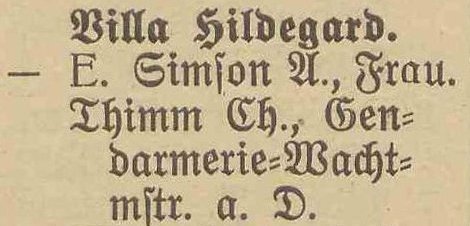 Villa Hildegard.
— E. Simſon A., Frau.
Thimm Ch., Gen⸗
darmerie⸗Wacht⸗
mſtr. a. D.